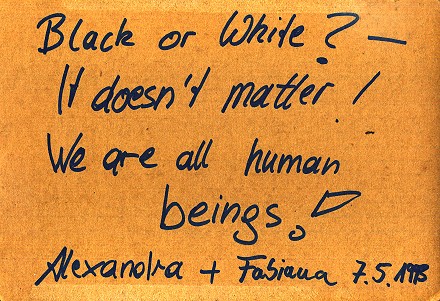 Black or White? —
It doesn't matter!
We are all human
beings!
Alexandra + Fabiana 7.5.1993